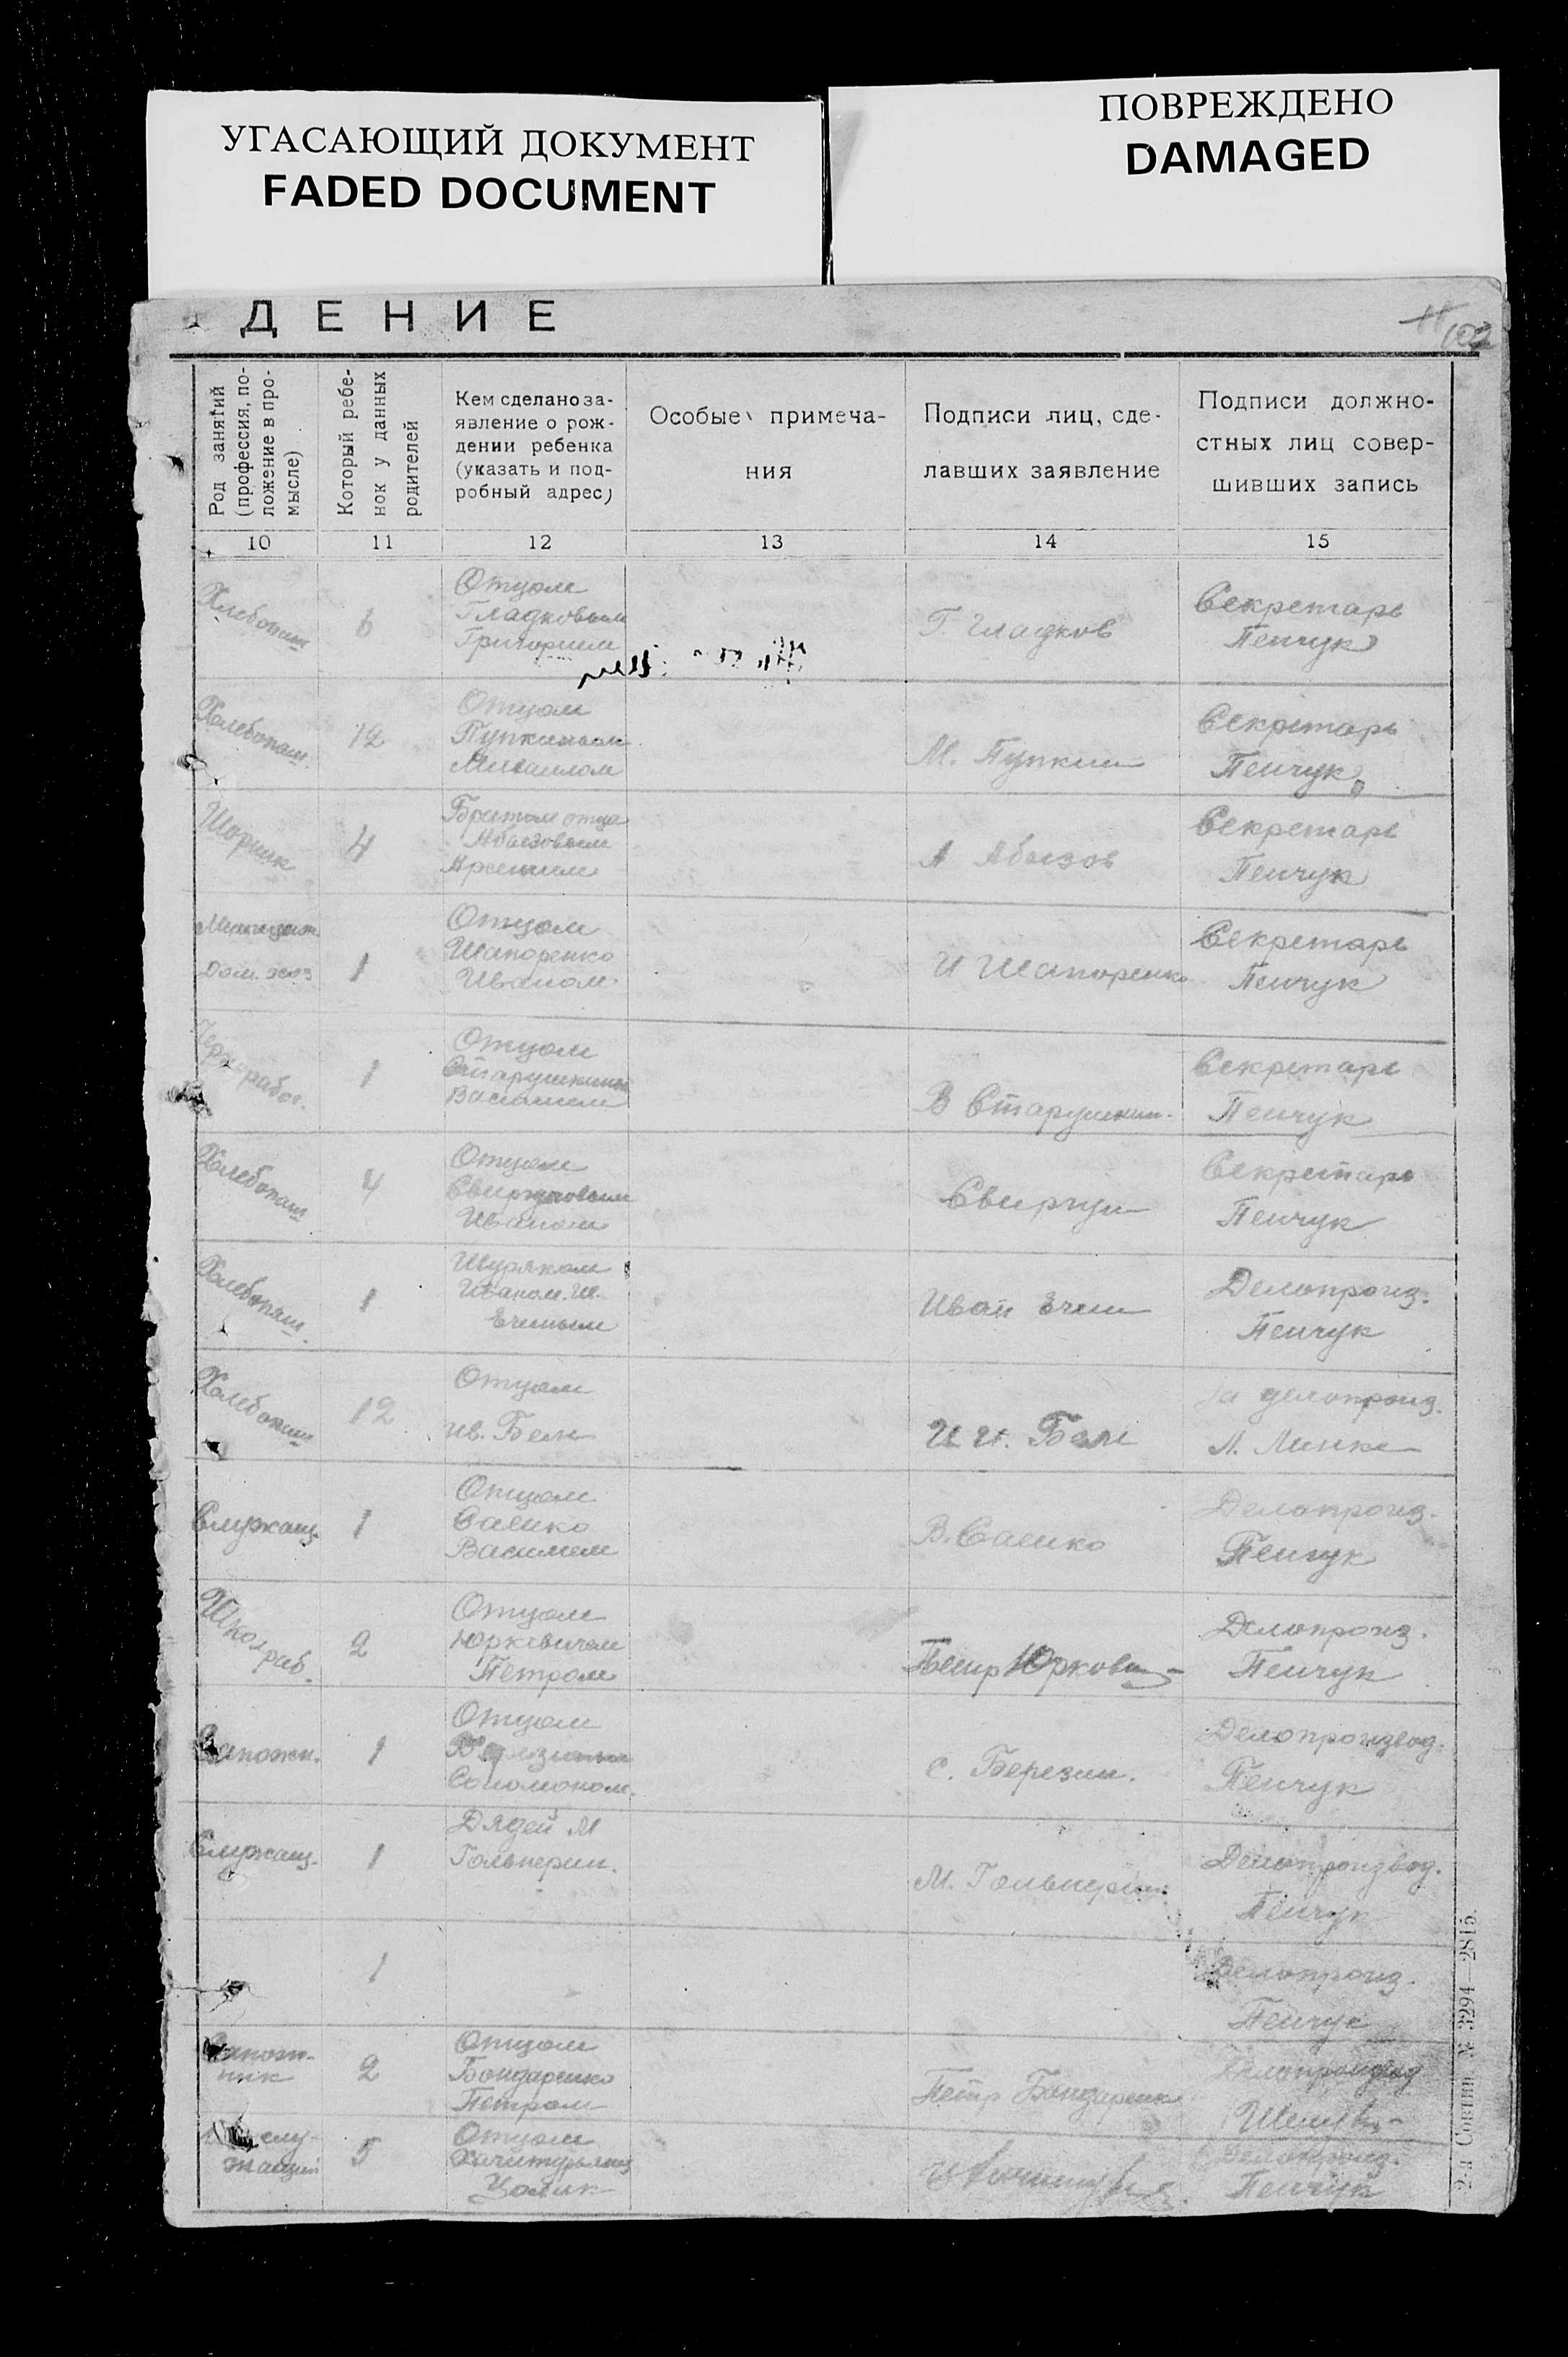 УГАСАЮЩИЙ ДОКУМЕНТ
FADED DOCUMENT
ПОВРЕЖДЕНО
DAMAGED
ДЕНИЕ
102
Род занятий
(профессия, по-
ложение в про-
мысле)
Который ребе-
нок у данных
родителей
Кем сделано за-
явление о рож-
дении ребенка
(указать и под-
робный адрес)
Особые примеча-
ния
Подписи лиц, сде-
лавших заявление
Подписи должно-
стных лиц совер-
шивших запись
10 11 12 13 14 15
Хлебопаш
6
Отцом
Гладковым
Григорием
Г. Гладков
Секретарь
Пенчук
Хлебопаш.
12
Отцом
Пупкиным
Михаилом
М. Пупкин
Секретарь
Пенчук
Шорник
4
Братом отца
Абызовым
Арсением
А Абызов
Секретарь
Пенчук
Дом. хоз
1
Отцом
Шапоренко
Иваном
И Шапоренко
Секретарь
Пенчук
Чернорабоч.
1
Отцом
Старушкиным
Василием
В Старушкин
Секретарь
Пенчук
Хлебопаш
4
Отцом
Иваном
Секретарь
Пенчук
Хлебопаш.
1
Шуряком
Иваном. Ш.
Ечиным
Иван Ечин
Делопроиз.
Пенчук
Хлебопаш
12
Отцом
Ив. Белм
И И. Белм
За делопроиз.
Служащ.
1
Отцом
Саенко
Василием
В. Саенко
Делопроиз.
Пенчук
Школ раб.
2
Отцом
Юркевичем
Петром
Делопроиз.
Пенчук
Сапожн.
1
Отцом
Березиным
Соломоном.
С. Березин.
Делопроизвод.
Пенчук
Служащ.
1
Дядей М
Гольперин.
М. Гольперин
Делопроизвод.
Пенчук
1
Делопроиз.
Пенчук
Сапож-
ник
2
Отцом
Бондаренко
Петром
Петр Бондаренко
Делопроизвод
слу-
жащий
5
Отцом
Делопроиз.
Пенчук
2-я Совтип. № 3294—2815.